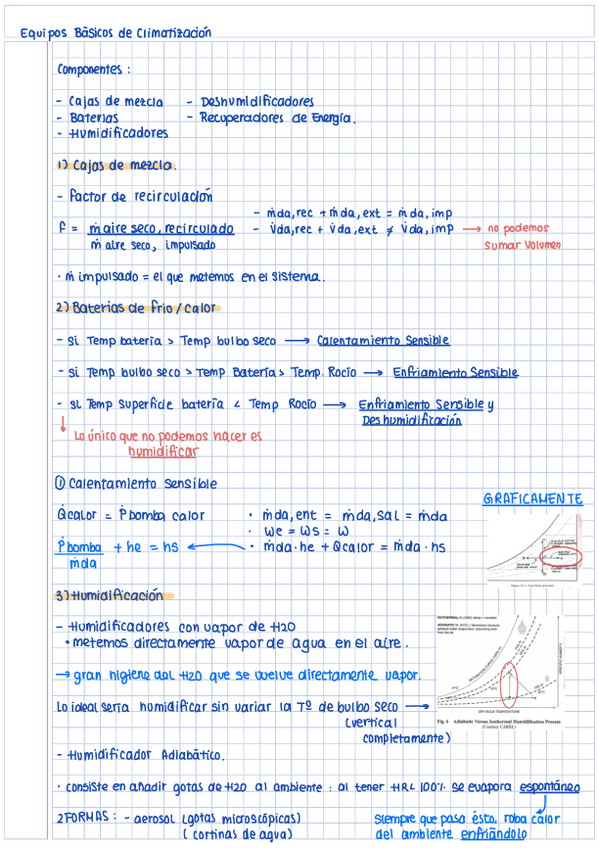 Equipos Básicos de Climatización
Componentes :
- Cajas de mezcla - Deshumidificadores
- Baterias - Recuperadores de Energía.
- Humidificadores
1) Cajas de mezcla.
- Factor de recirculación
- ṁda,rec + ṁda,ext = ṁda,imp
f = ṁ aire seco, recirculado - V̇da,rec + V̇da,ext ≠ V̇da,imp → no podemos
ṁ aire seco, impulsado sumar volumen
· ṁ impulsado = el que metemos en el sistema.
2) Baterias de frio / calor
- Si Temp bateria > Temp bulbo seco → Calentamiento Sensible
- Si Temp bulbo seco > Temp Bateria > Temp. Rocio → Enfriamiento Sensible
- Si Temp Superficie bateria < Temp Rocio → Enfriamiento Sensible y
Deshumidificación
↓ Lo único que no podemos hacer es
humidificar
① Calentamiento Sensible
GRAFICAMENTE
Q̇calor = Ṗbomba calor · ṁda,ent = ṁda,sal = ṁda
· We = Ws = W
Ṗbomba + he = hs ← · ṁda · he + Qcalor = ṁda · hs
ṁda
3) Humidificación
- Humidificadores con vapor de H2O
· metemos directamente vapor de agua en el aire.
→ gran higiene del H2O que se vuelve directamente vapor.
Lo ideal seria humidificar sin variar la Tº de bulbo seco →
(vertical
completamente)
DRY-BULB TEMPERATURE
Fig. 6 Adiabatic Versus Isothermal Humidification Process
(Courtesy CAREL)
- Humidificador Adiabático.
· consiste en añadir gotas de H2O al ambiente : al tener HR< 100% se evapora espontáneo
2 FORMAS : - aerosol (gotas microscópicas) Siempre que pasa ésto, roba calor
( cortinas de agua) del ambiente enfriándolo